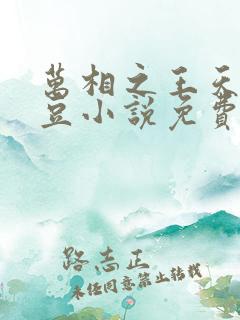 萬相之王天
豆小說免費
路志正
未经同意禁止转载